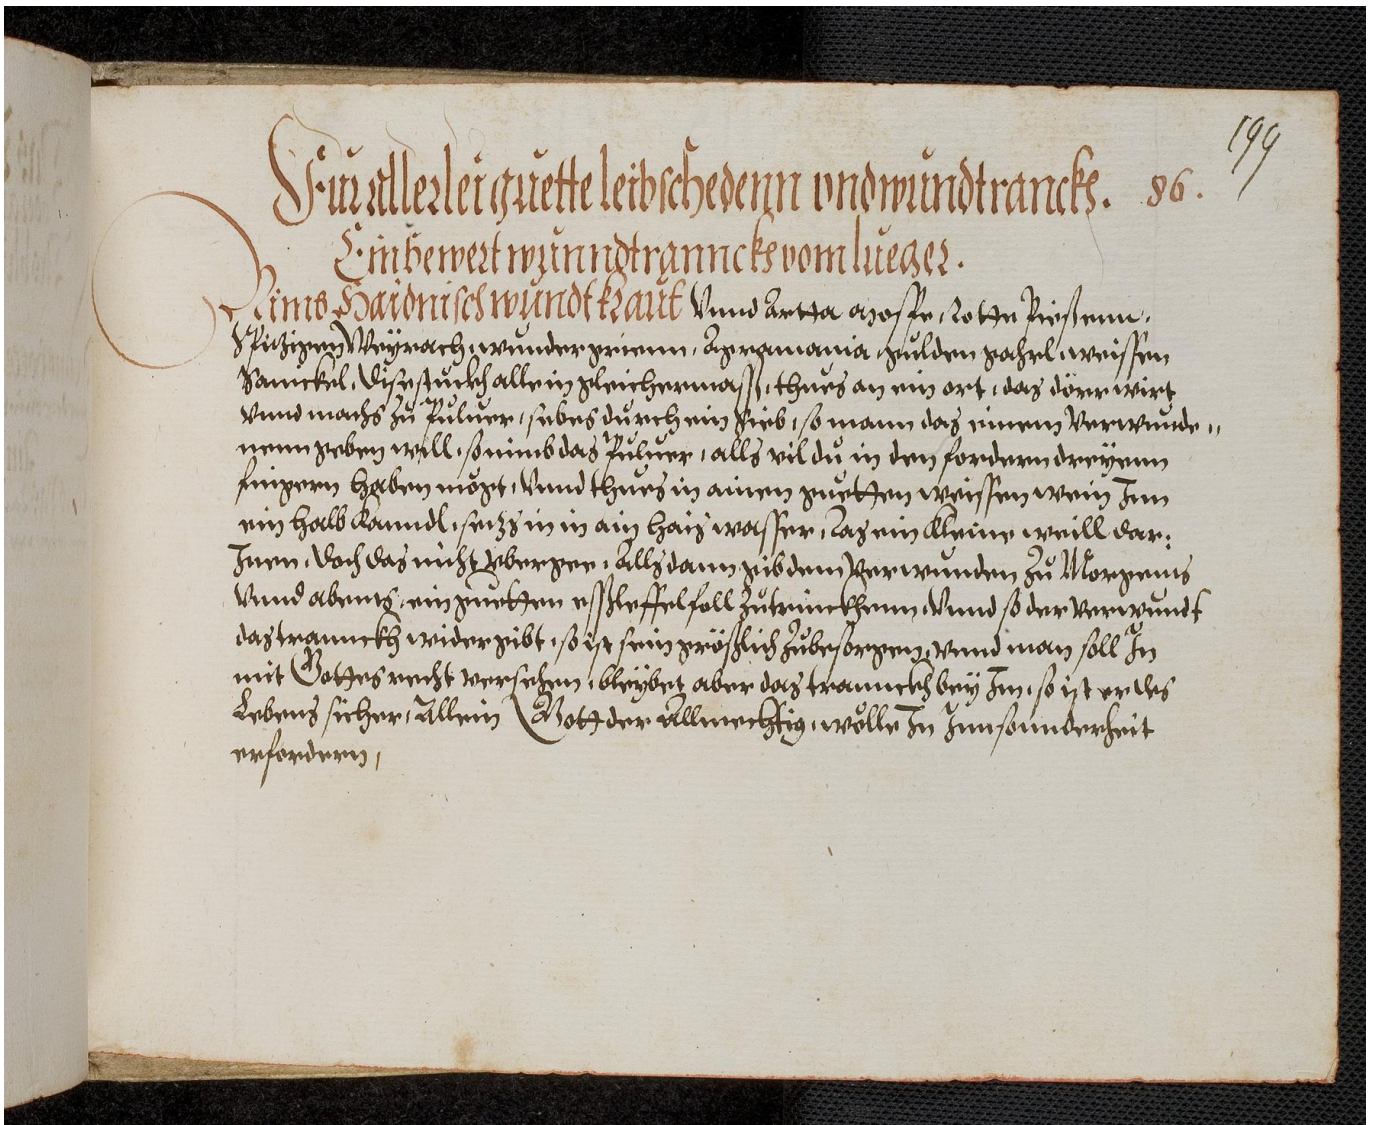 199
Fur allerlei guette leibschedenn vnd wundtrancks. 86.
Ein bewert wunndtranncks vom lueger.
Nimb Haidnisch wundtkraut Vnnd Rotte
Weyrach, wundergrienn, Agramania, gulden weissen
Sanickel, dise stuckh all ein gleichermass, thues an ein ort, das dörr wirt
Vnnd machs zu Puluer, sebes durch ein sieb, so mann das einem Verwunde„
nenn geben will, so nimb das Puluer, alls vil du in den fordern dreyenn
fingern haben mögt, Vnnd thues in ainen guetten weissen wein Inn
ein halb Kanndl, setzs in in ain hais wasser, Las ein kleine weill dar:
Inen, doch das nicht vbergee, Allsdann gib dem Verwunden zu Morgenns
Vnnd abents, ein guetten essleffel foll zutrinckhenn, Vnnd so der Verwundt
das tranckh wider gibt, so ist sein grösslich zubesorgen, vnnd man soll In
mit Gottes recht versehen, bleybet aber das tranckh bey Im, so ist er des
Lebens sicher, Allein Gott der Allmechtig, wolle In Innsonnderheit
erfordern,